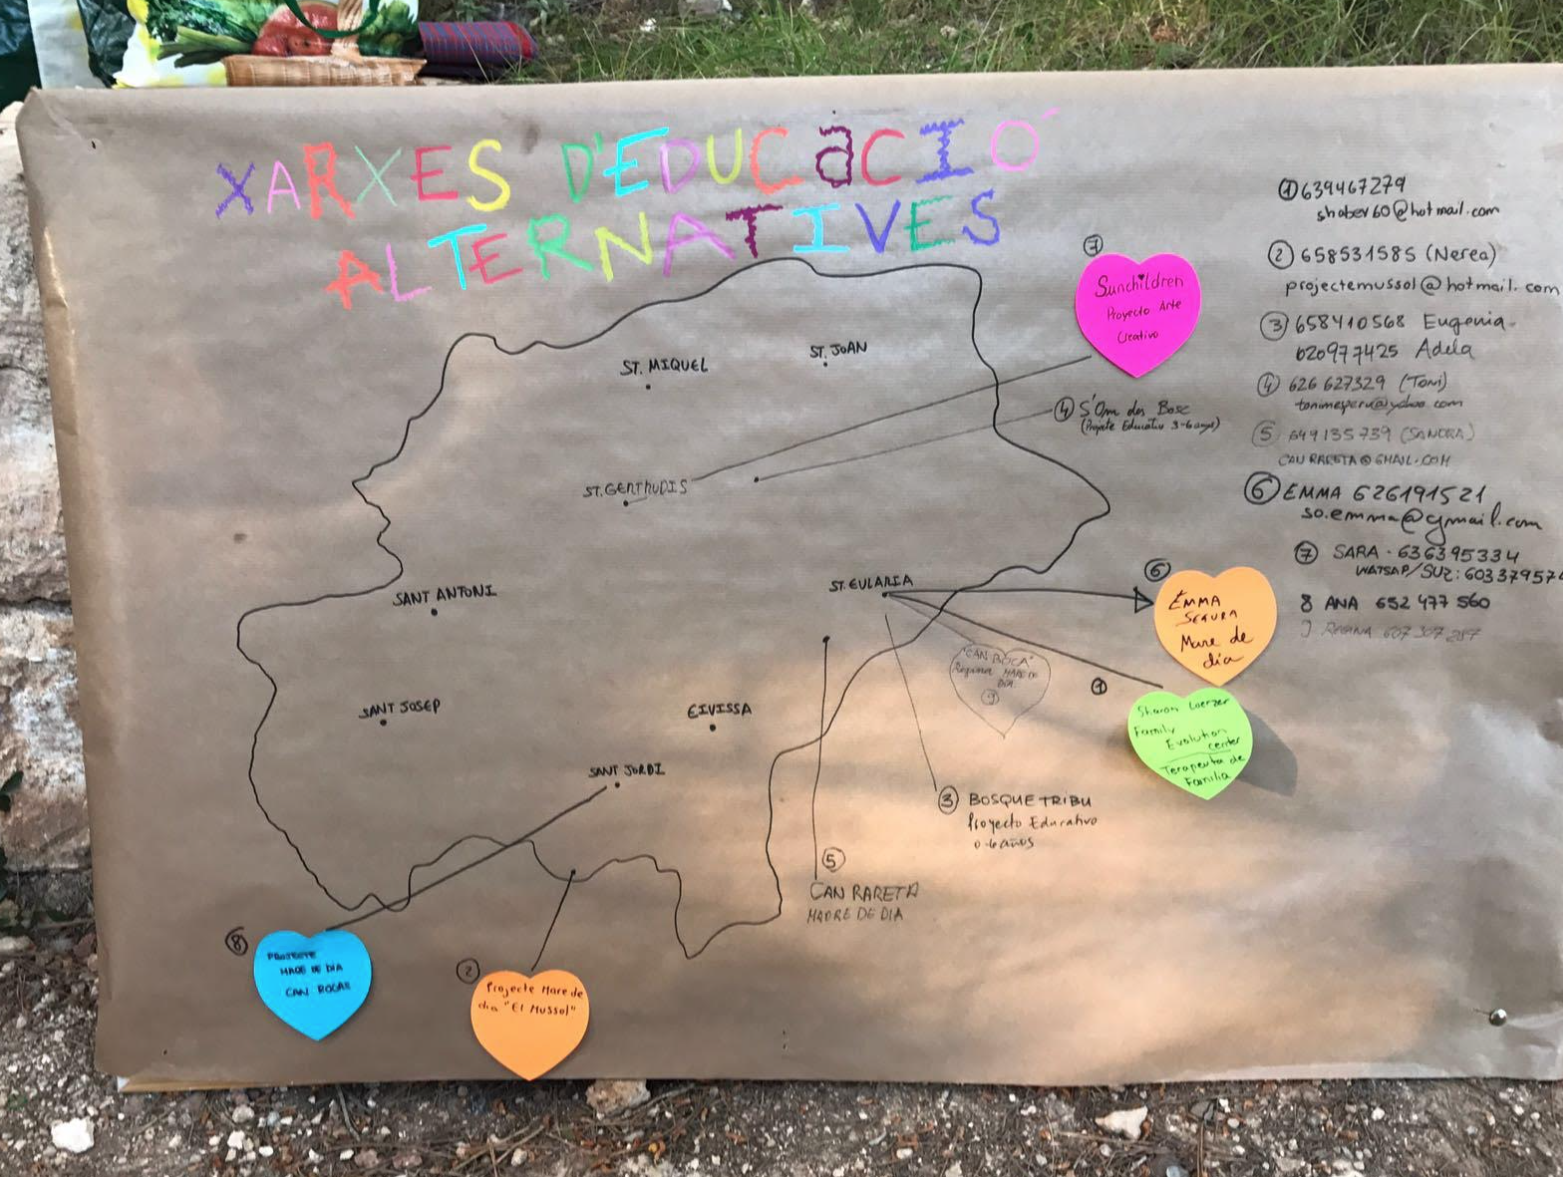 XARXES D'EDUCACIÓ
ALTERNATIVES
① 639467279
shaber60@hotmail.com
② 658531585 (Nerea)
projectemussol@hotmail.com
③ 658410568 Eugenia
620977425 Adela
④ 626 627329 (Toni)
⑤ 649135739 (SANDRA)
CANRARETA@GMAIL.COM
⑥ EMMA 626191521
so.emma@gmail.com
⑦ SARA - 636395334
WATSAP/SUZ: 60337957
8 ANA 652 477 560
REGINA 607 307 287
⑦
Sunchildren
Proyecto Arte
Creativo
ST. MIQUEL
ST. JOAN
④ S'Om des Bosc
(Projecte Educatiu 3-6 anys)
ST. GERTRUDIS
ST. EULARIA
SANT ANTONI
⑥
EMMA
SEGURA
Mare de
dia
"CAN BOCA"
Regina MARE DE
DIA
⑨
①
Sharon
Family
Evolution
center
Terapeuta de
Familia
SANT JOSEP
EIVISSA
SANT JORDI
③ BOSQUETRIBU
Proyecto Educativo
0-6 años
⑤
CAN RARETA
MADRE DE DIA
⑧
PROJECTE
MARE DE DIA
CAN ROCAS
②
Projecte Mare de
dia "El Mussol"